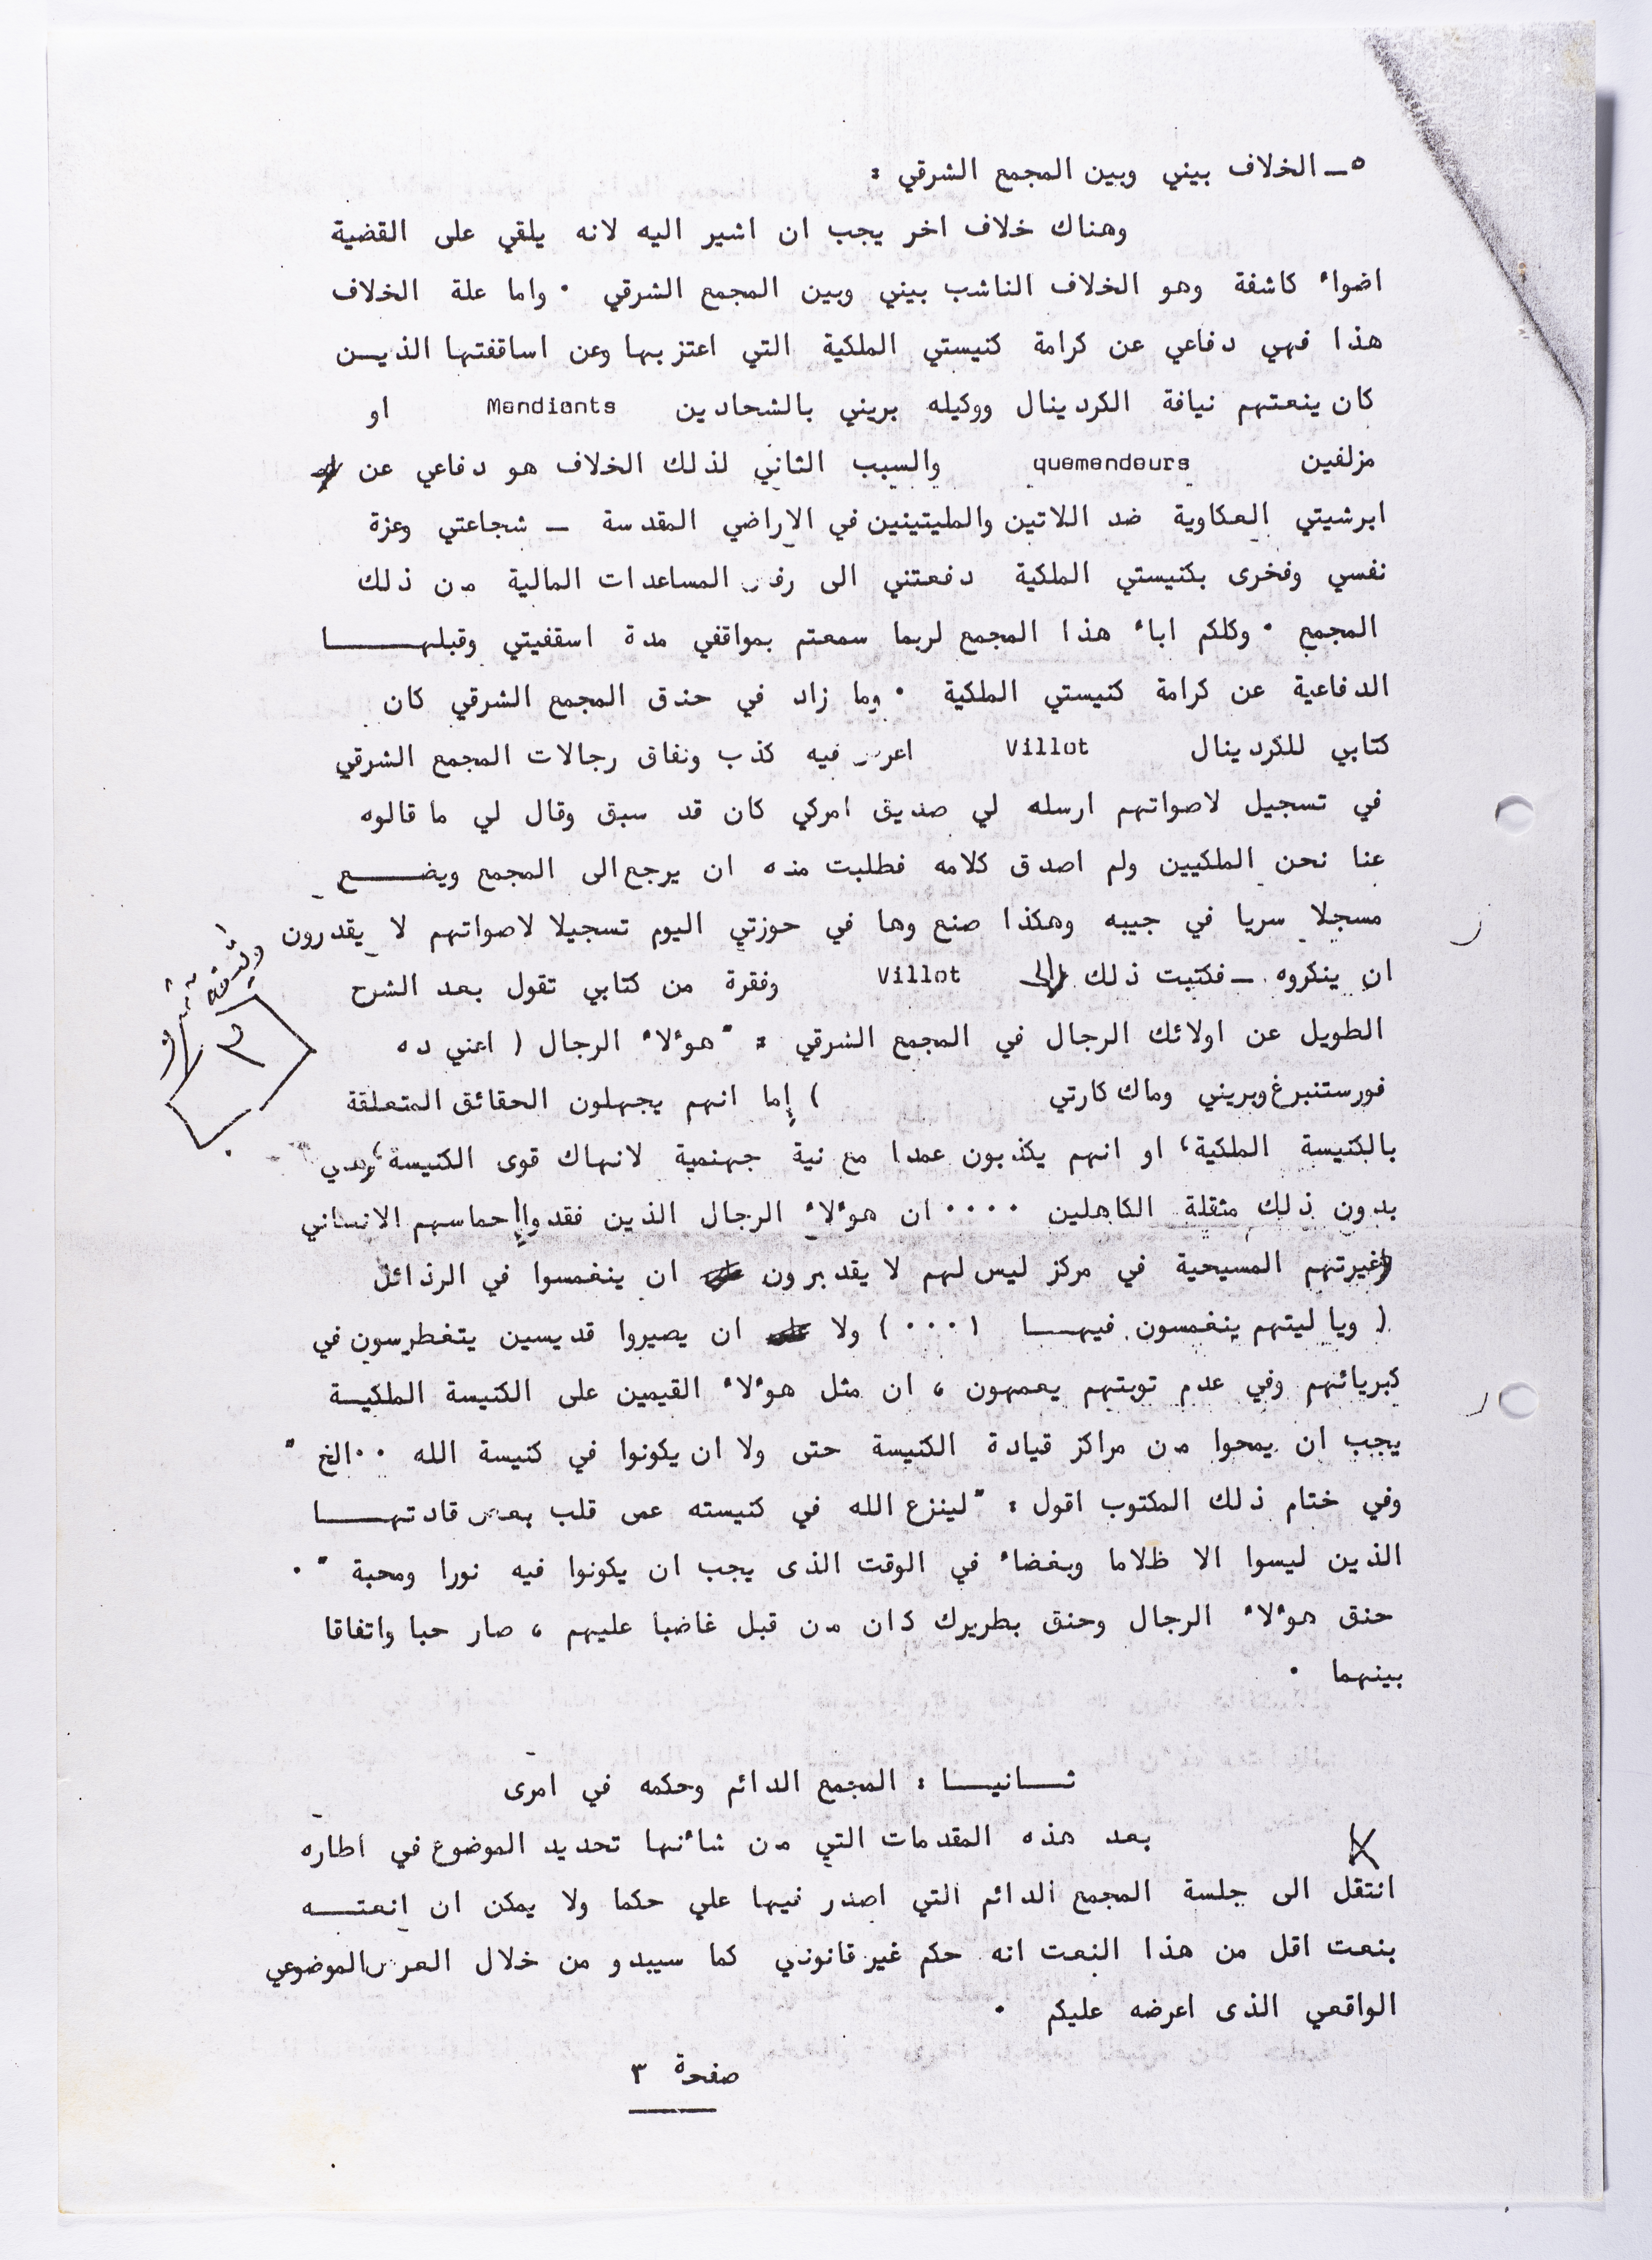 ٥ــ الخلاف بيني وبين المجمع الشرقي :
وهناك خلاف اخر يجب ان اشير اليه لانه يلقي على القضية
اضواء كاشفة وهو الخلاف الناشب بيني وبين المجمع الشرقي ٠ واما علة الخلاف
هذا فهي دفاعي عن كرامة كنيستي الملكية التي اعتز بها وعن اساقفتها الذيــن
كان ينعتهم نيافة الكردينال ووكيله بريني بالشحادين Mendiants او
مزلفين quemandeurs والسبب الثاني لذلك الخلاف هو دفاعي عن
ابرشيتي العكاوية ضد اللاتين والمليتينين في الاراضي المقدسة ــ شجاعتي وعزة
نفسي وفخرى بكنيستي الملكية دفعتني الى رفض المساعدات المالية من ذلك
المجمع ٠ وكلكم اباء هذا المجمع لربما سمعتم بمواقفي مدة اسقفيتي وقبلهــــا
الدفاعية عن كرامة كنيستي الملكية ٠ وما زاد في حندق المجمع الشرقي كان
كتابي للكردينال Villot اعرض فيه كذب ونفاق رجالات المجمع الشرقي
في تسجيل لاصواتهم ارسله لي صديق امركي كان قد سبق وقال لي ما قالوه
عنا نحن الملكيين ولم اصدق كلامه فطلبت منه ان يرجع الى المجمع ويضـــع
مسجلا سريا في جيبه وهكذا صنع وها في حوزتي اليوم تسجيلا لاصواتهم لا يقدرون
ان ينكروه ــ فكتبت ذلك إلى Villot وفقرة من كتابي تقول بعد الشرح
الطويل عن اولائك الرجال في المجمع الشرقي : " هوءلاء الرجال ( اعني ده
فورستنبرغ وبريني وماك كارتي ) إما انهم يجهلون الحقائق المتعلقة
بالكنيسة الملكية، او انهم يكذبون عمدا مع نية جهنمية لانهاك قوى الكنيسة، وهي
بدون ذلك مثقلة الكاهلين ٠٠٠٠ ان هوءلاء الرجال الذين فقدوا إحماسهم الانساني
وغيرتهم المسيحية في مركز ليس لهم لا يقدرون ان ينغمسوا في الرذائل
( ويا ليتهم ينغمسون فيهــا ! ٠٠٠ ) ولا ان يصيروا قديسين يتغطرسون في
كبريائهم وفي عدم توبتهم يعمهون ، ان مثل هوءلاء القيمين على الكنيسة الملكيــة
يجب ان يمحوا من مراكز قيادة الكنيسة حتى ولا ان يكونوا في كنيسة الله ٠٠ الخ "
وفي ختام ذلك المكتوب اقول : " لينزع الله في كنيسته عمى قلب بعض قادتهــــا
الذين ليسوا الا ظلاما وبغضاء في الوقت الذى يجب ان يكونوا فيه نورا ومحبة " ٠
حنق هوءلاء الرجال وحنق بطريرك كان من قبل غاضبا عليهم ، صار حبا واتفاقا
بينهما ٠
ثــانيــا : المجمع الدائم وحكمه في امرى
بعد هذه المقدمات التي من شاءنها تحديد الموضوع في اطاره
انتقل الى جلسة المجمع الدائم التي اصدر فيها علي حكما ولا يمكن ان انعتــه
بنعت اقل من هذا النعت انه حكم غير قانوني كما سيبدو من خلال العرض الموضوعي
الواقعي الذى اعرضه عليكم ٠
صفحة ٣